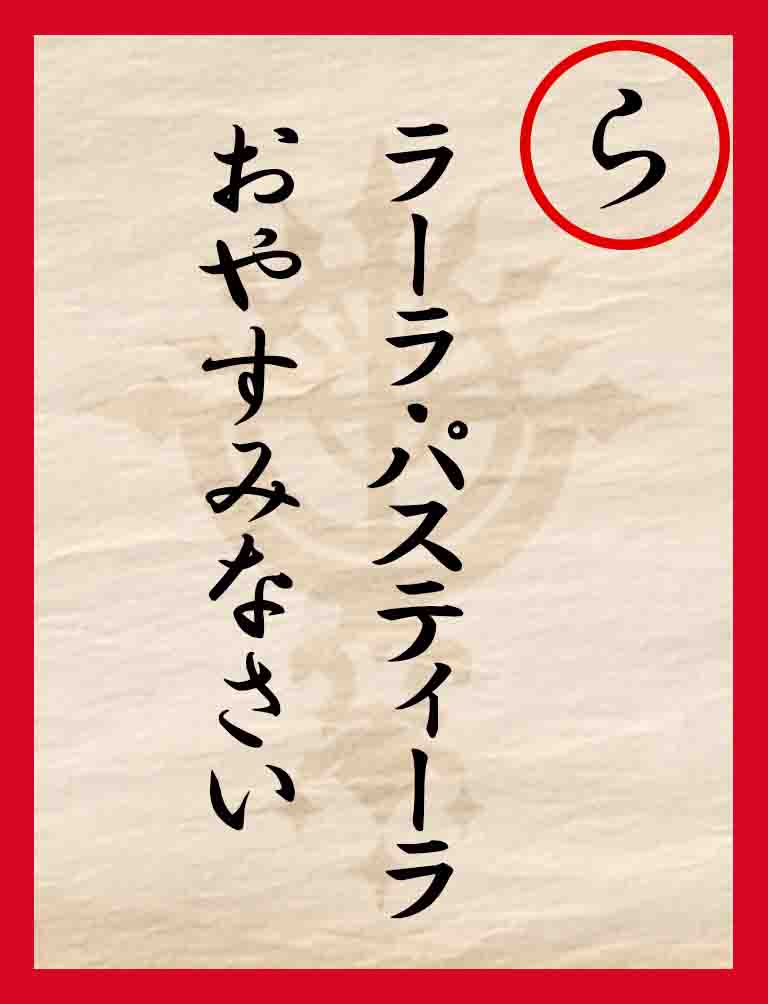 ら
ラーラ・パスティーラ
おやすみなさい